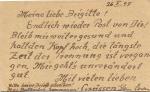 26.X.44
Meine liebe Brigitte!
Endlich wieder Post von Dir!
Bleib nur weiter gesund und
halt den Kopf hoch, die längste
Zeit der Trennung ist vergan-
gen. Mir geht's unverändert
gut.
Mit vielen lieben